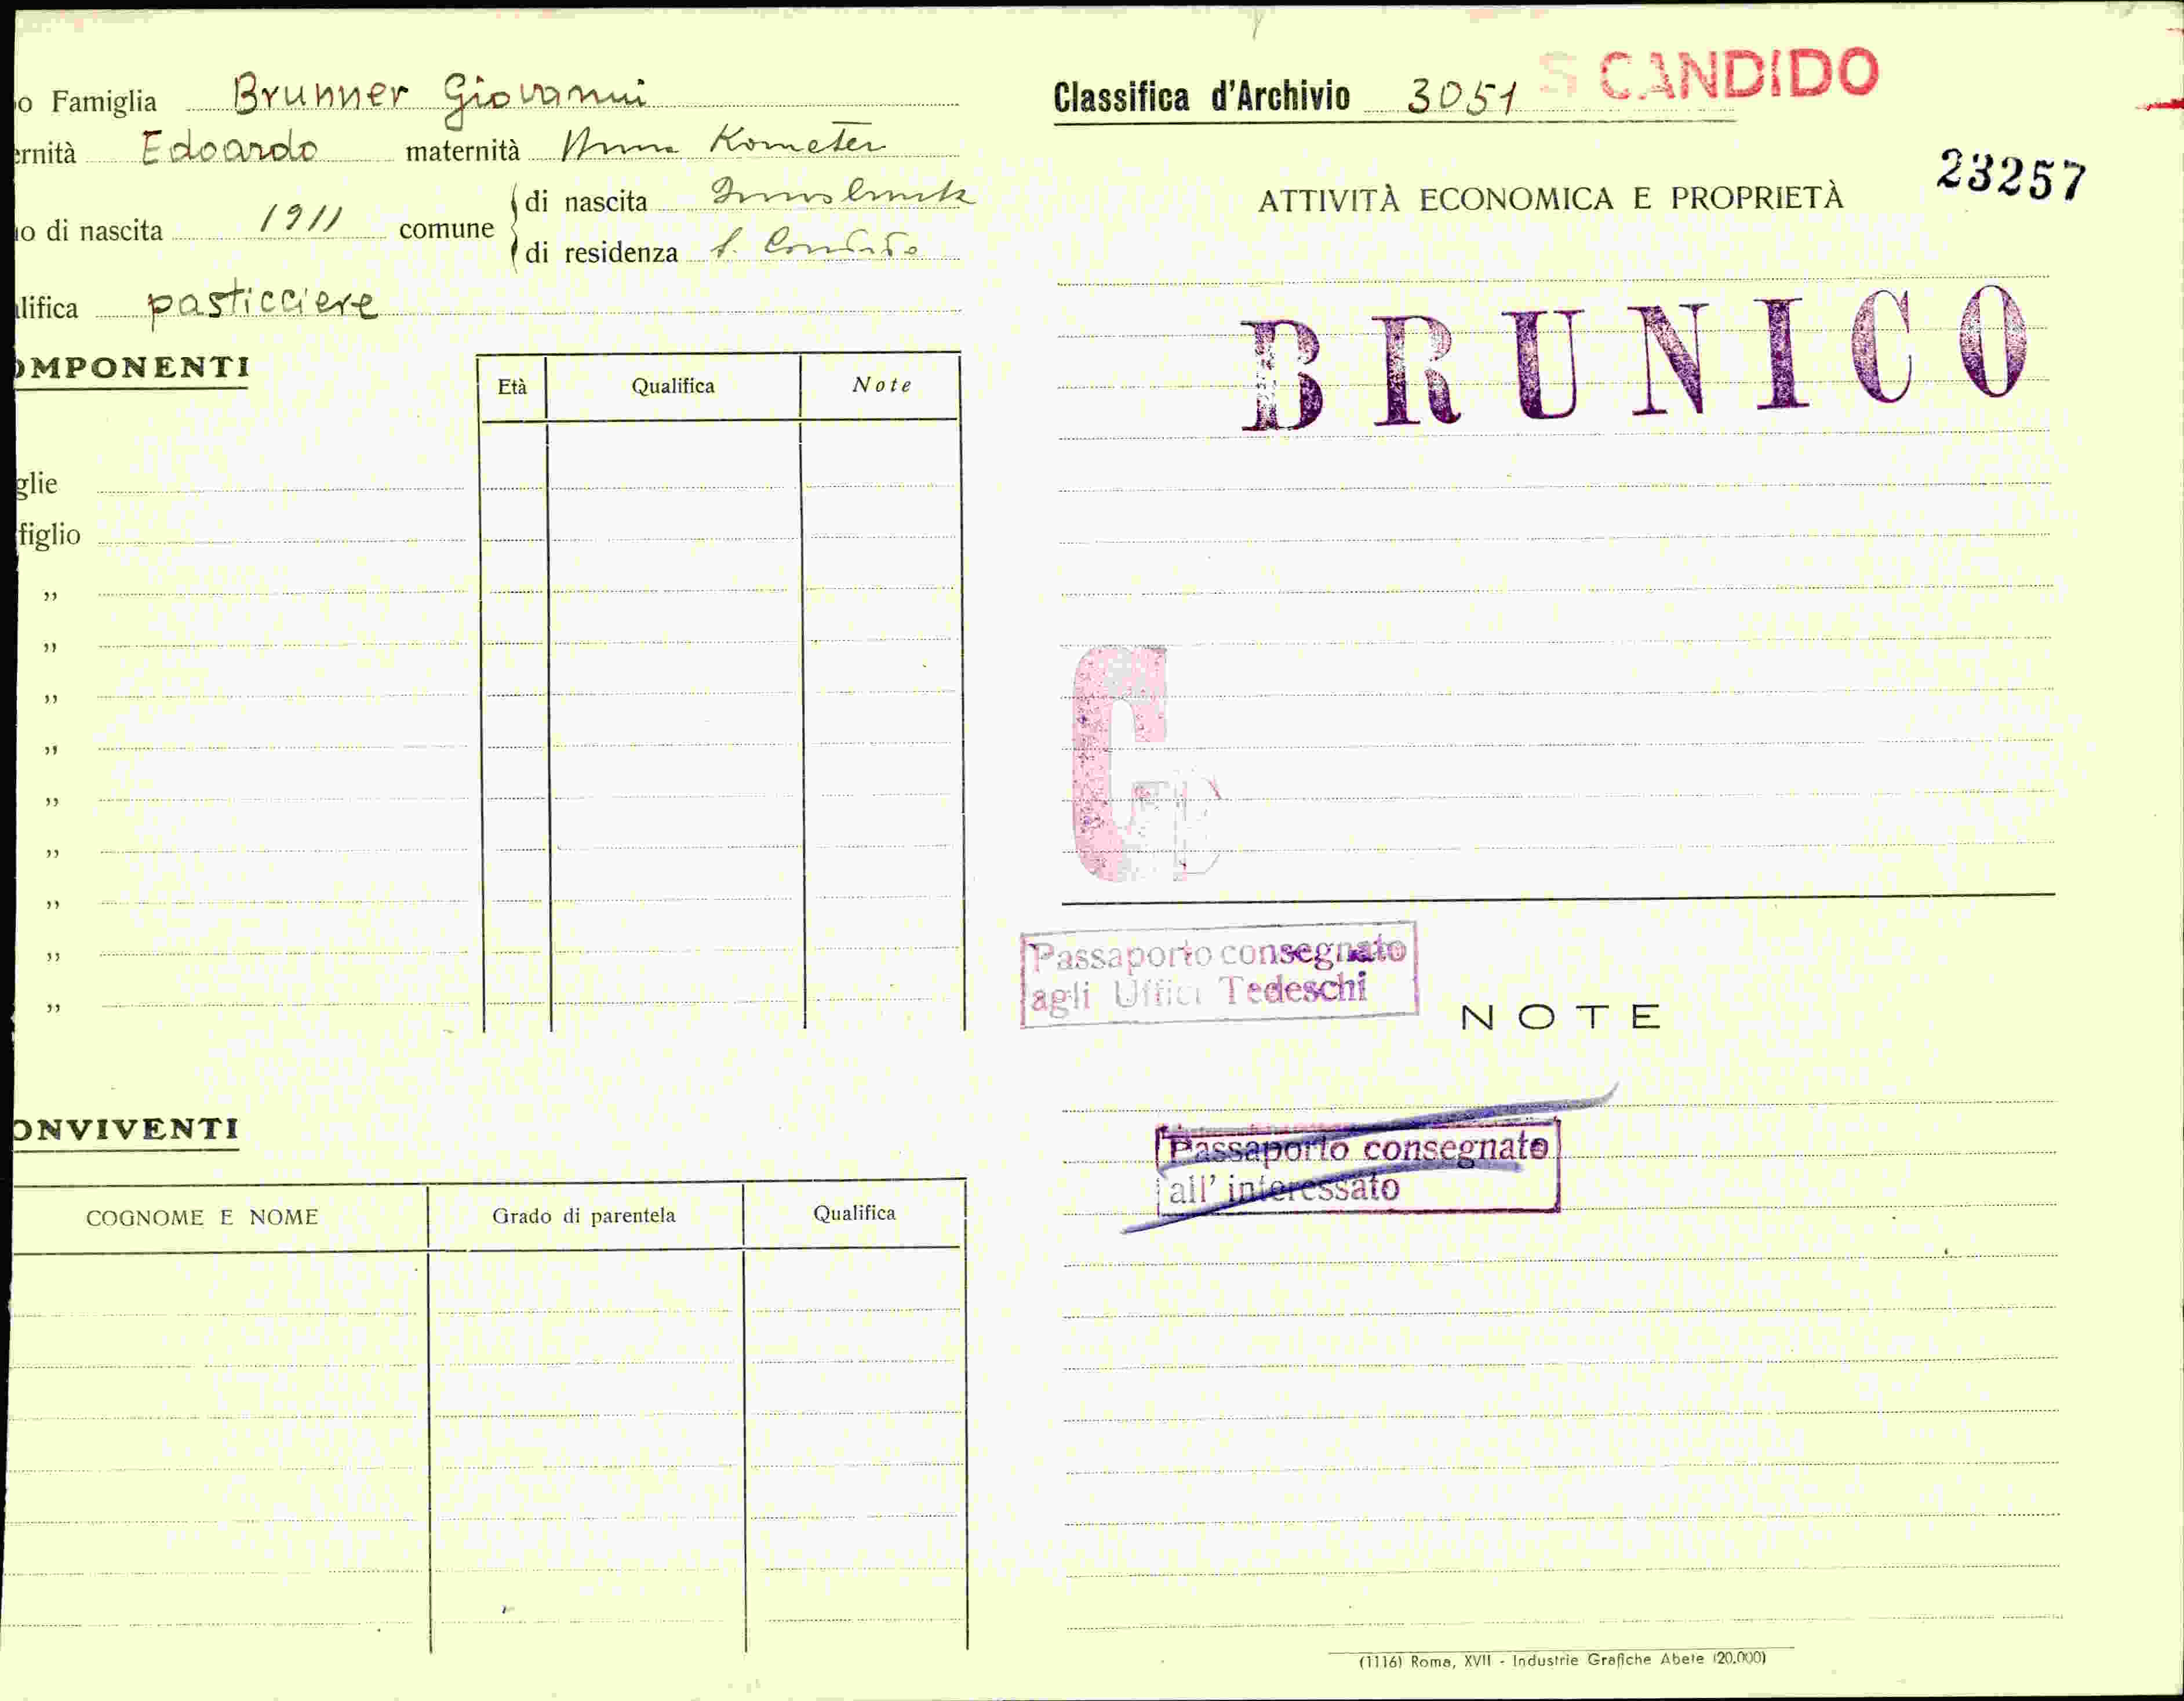 o Famiglia Brunner Giovanni
ernità Edoardo maternità Anna Kometer
o di nascita 1911 comune di nascita Innsbruck
di residenza S. Candido
lifica pasticciere
OMPONENTI
Età Qualifica Note
glie
figlio
"
"
"
"
"
"
"
"
"
ONVIVENTI
COGNOME E NOME Grado di parentela Qualifica
Classifica d'Archivio 3051 S CANDIDO
23257
ATTIVITÀ ECONOMICA E PROPRIETÀ
BRUNICO
C
Passaporto consegnato
agli Uffici Tedeschi
NOTE
Passaporto consegnato
all' interessato
(1116) Roma, XVII - Industrie Grafiche Abete (20.000)